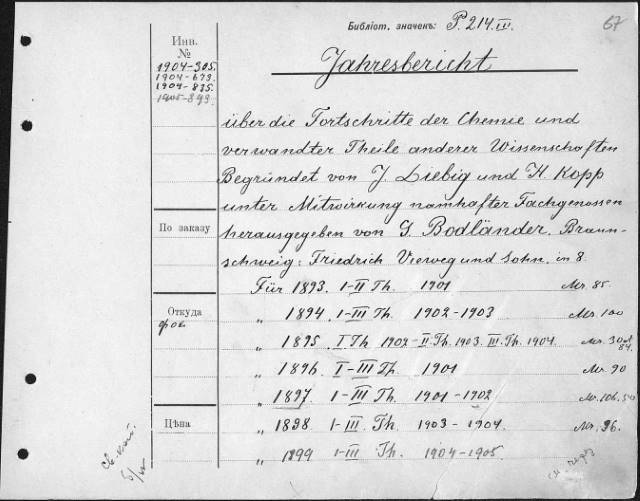 Библіот. значекъ: P. 214.III.
67
Инв.
№
1904-305.
1904-673.
1904-835.
1905-893.
Jahresbericht
über die Fortschritte der Chemie und
verwandter Theile anderer Wissenschaften
Begründet von J. Liebig und H. Kopp
unter Mitwirkung namhafter Fachgenossen
herausgegeben von G. Bodländer. Braun-
schweig: Friedrich Vieweg und Sohn. in 8.
По заказу
Für 1893. I-II Th. 1901 Mr. 85
Откуда
„ 1894. I-III Th. 1902-1903 Mr. 100
„ 1895. I Th. 1902-II. Th. 1903. III. Th. 1904. Mr.
„ 1896. I-III Th. 1901 Mr. 90
„ 1897. I-III Th. 1901-1902 Mr. 106.50
Цѣна
„ 1898. I-III. Th. 1903-1904. Mr. 96.
„ 1899 I-III Th. 1904-1905.